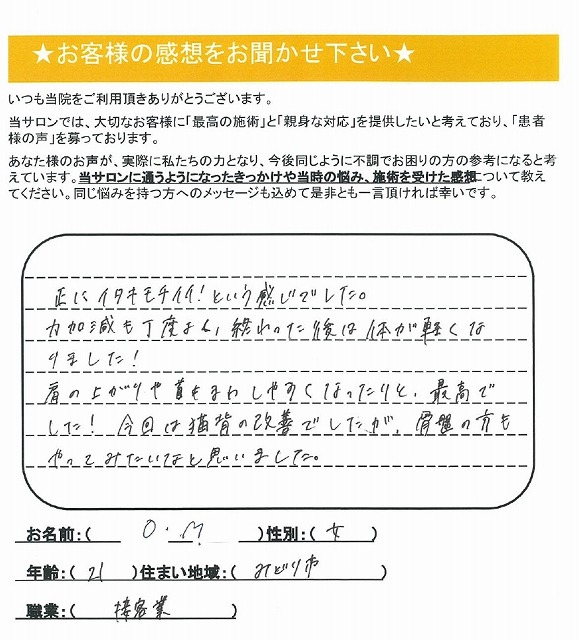 ★お客様の感想をお聞かせ下さい★
いつも当院をご利用頂きありがとうございます。
当サロンでは、大切なお客様に｢最高の施術｣と｢親身な対応｣を提供したいと考えており、｢患者
様の声｣を募っております。
あなた様のお声が、実際に私たちの力となり、今後同じように不調でお困りの方の参考になると考
えています。当サロンに通うようになったきっかけや当時の悩み、施術を受けた感想について教え
てください。同じ悩みを持つ方へのメッセージも込めて是非とも一言頂ければ幸いです。
正にイタキモチイイ!という感じでした。
力加減も丁度よく、終わった後は体が軽くな
りました!
肩の上がりや首もまわしやすくなったりと、最高で
した! 今回は猫背の改善でしたが、骨盤の方も
やってみたいなと思いました。
お名前:( O.M )性別:( 女 )
年齢:( 21 )住まい地域:( みどり市 )
職業:( 接客業 )